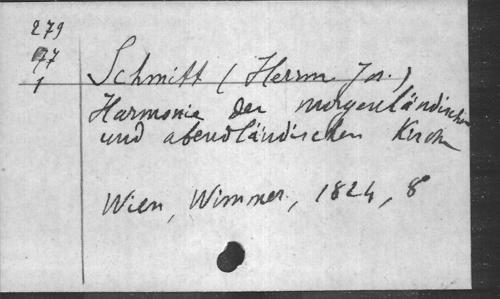 279
77
1
Schmitt (Herrm. Jos.)
Harmonie der morgenländischen
und abendländischen Kirche
Wien, Wimmer, 1824, 8°